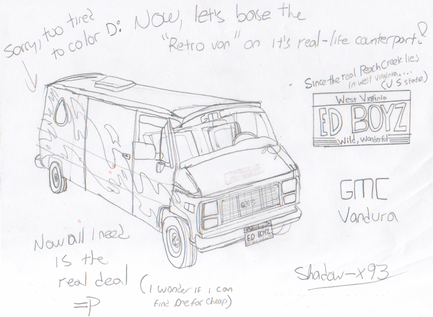 Sorry, too tired
to color D:
Now, let's base the
"Retro van" on it's real-life counterpart!
Since the real Peach Creek lies
in west virginia....
(US state)
West Virginia
ED BOYZ
Wild, Wonderful
GMC
Vandura
ED BOYZ
Now all I need
is the
real deal
=P
(I wonder if i can
find one for cheap)
Shadow-x93